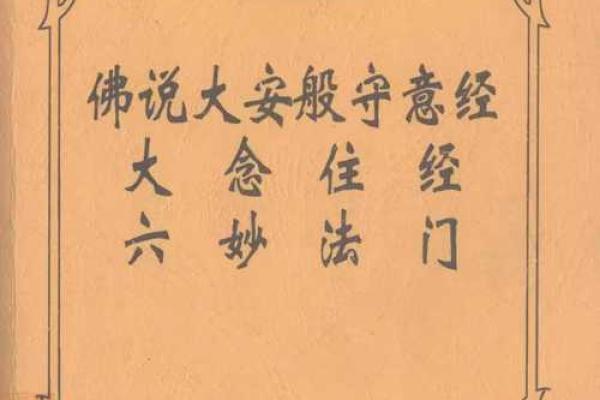 佛说大安般守意经
大念住经
六妙法门